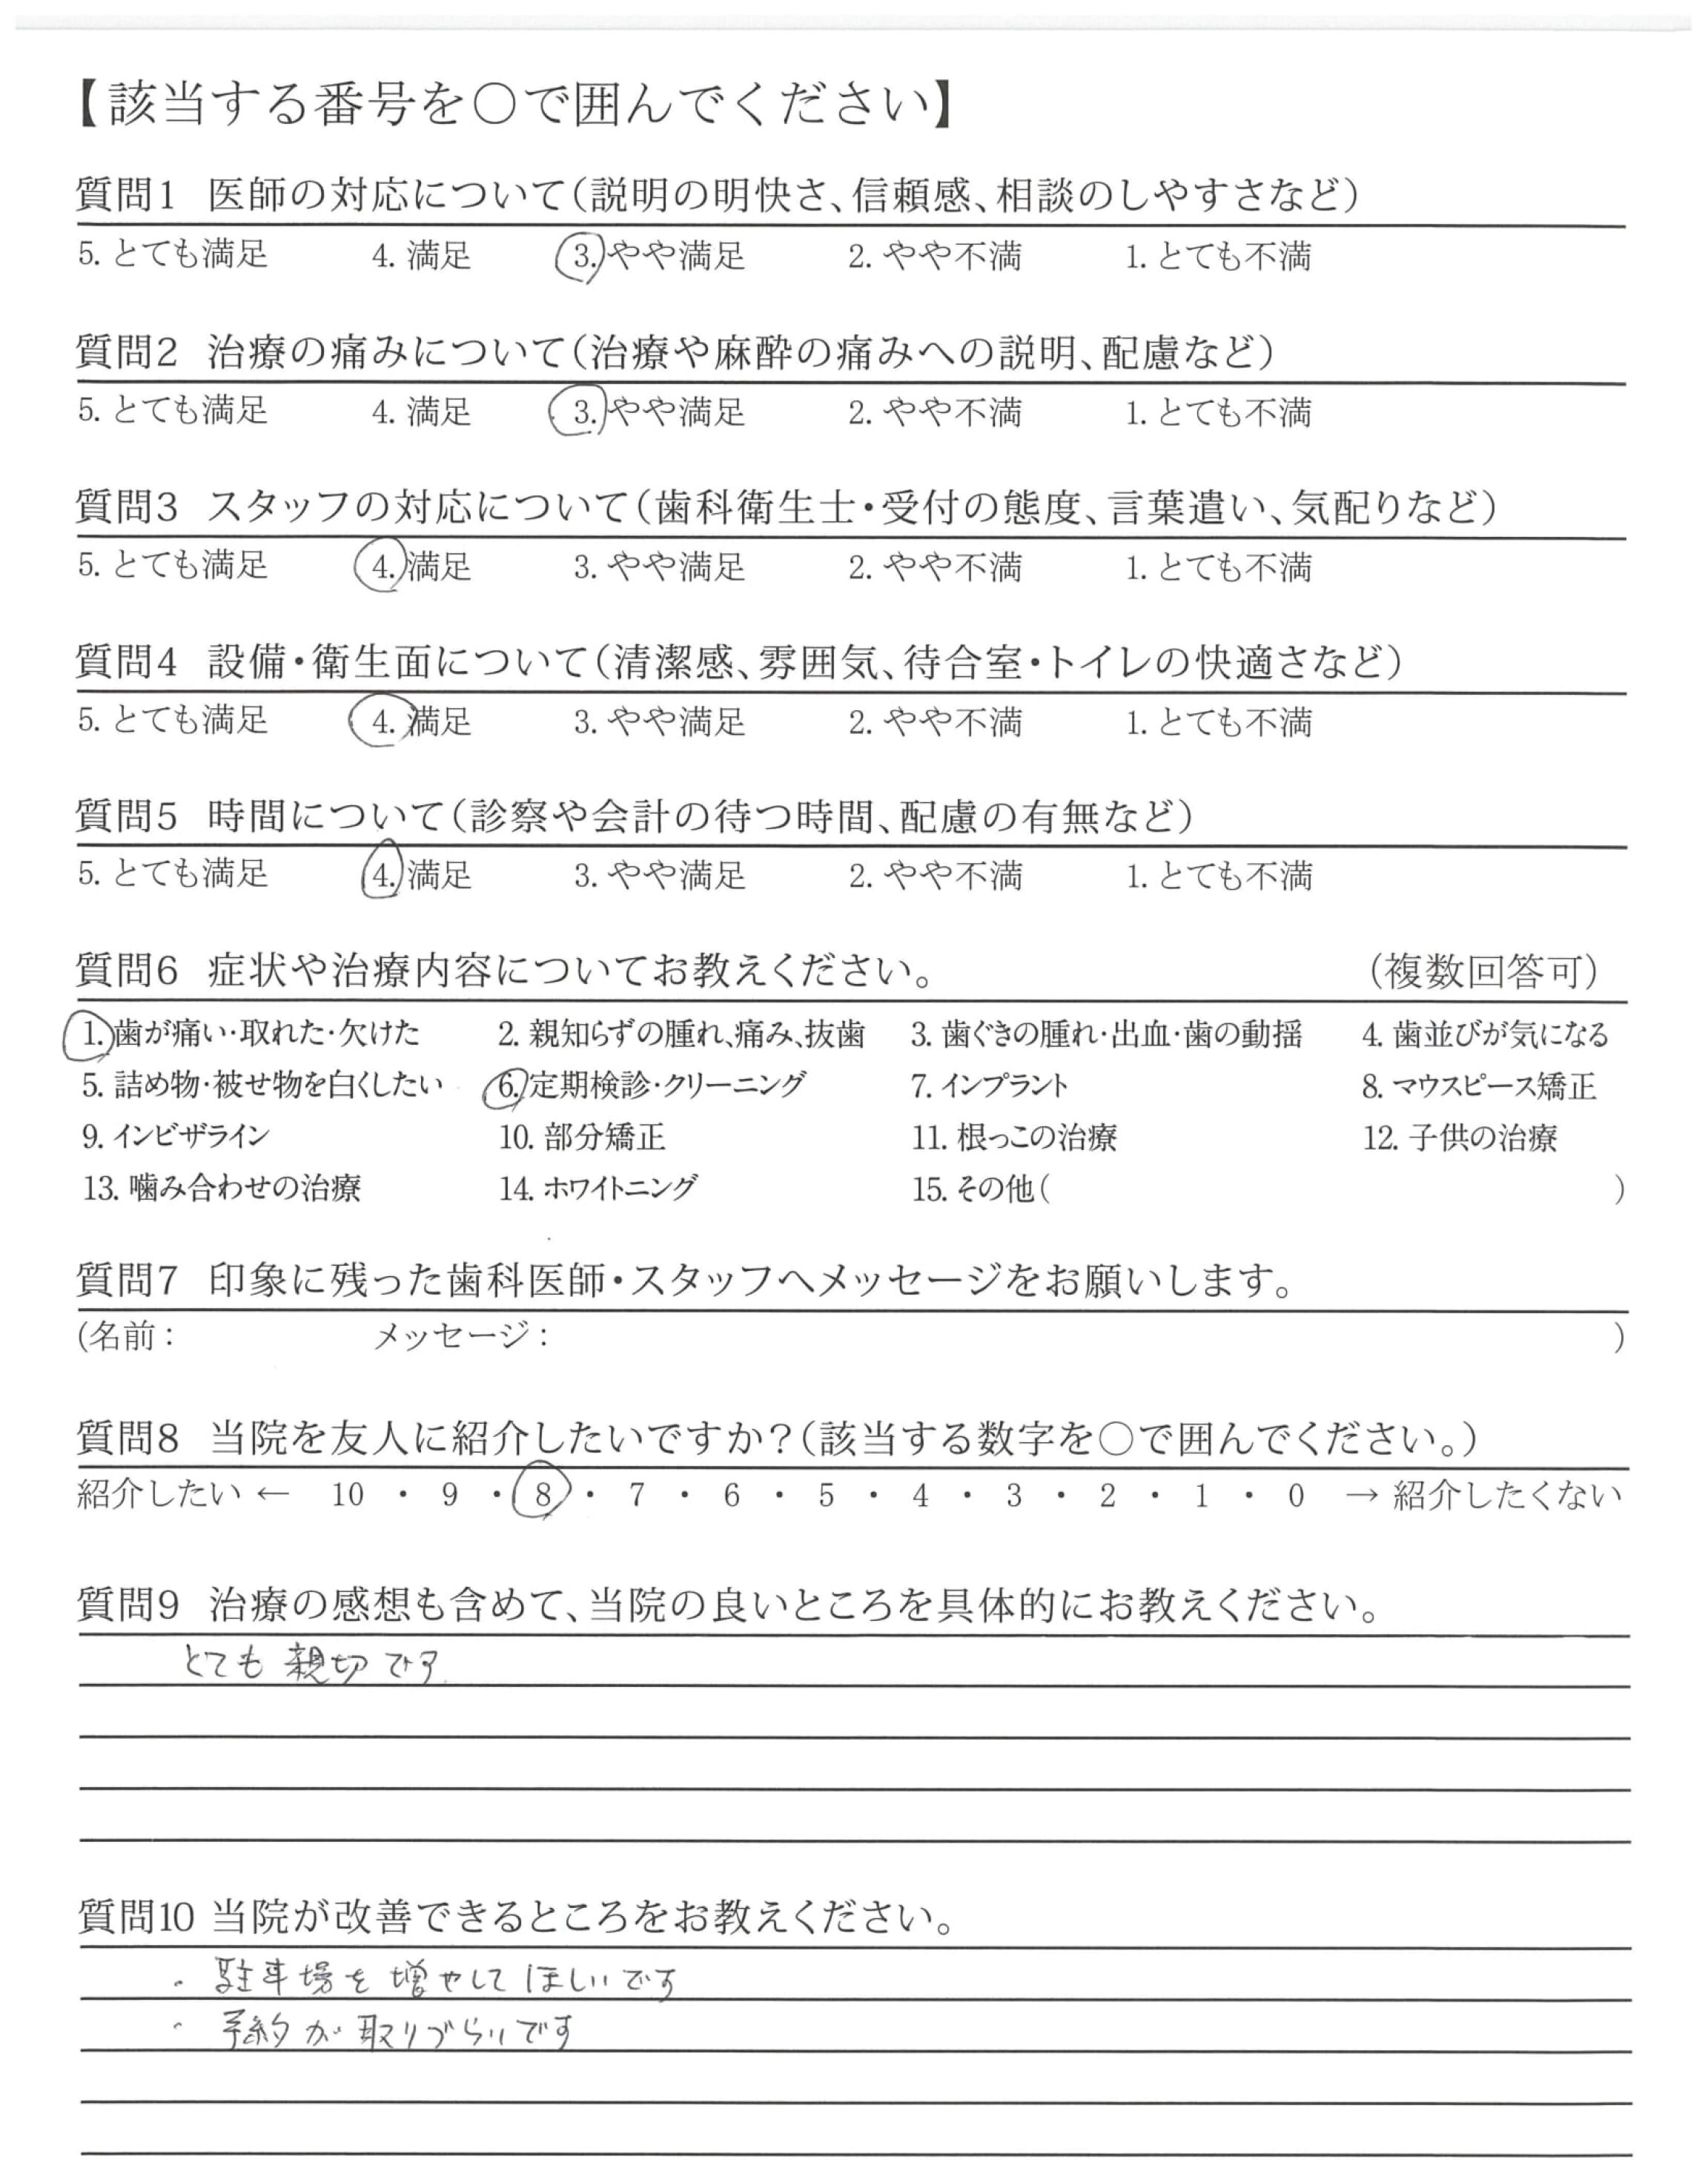 【該当する番号を○で囲んでください】
質問1 医師の対応について(説明の明快さ、信頼感、相談のしやすさなど)
5. とても満足 4. 満足 3. やや満足 2. やや不満 1. とても不満
質問2 治療の痛みについて(治療や麻酔の痛みへの説明、配慮など)
5. とても満足 4. 満足 3. やや満足 2. やや不満 1. とても不満
質問3 スタッフの対応について(歯科衛生士・受付の態度、言葉遣い、気配りなど)
5. とても満足 4. 満足 3. やや満足 2. やや不満 1. とても不満
質問4 設備・衛生面について(清潔感、雰囲気、待合室・トイレの快適さなど)
5. とても満足 4. 満足 3. やや満足 2. やや不満 1. とても不満
質問5 時間について(診察や会計の待つ時間、配慮の有無など)
5. とても満足 4. 満足 3. やや満足 2. やや不満 1. とても不満
質問6 症状や治療内容についてお教えください。 (複数回答可)
1. 歯が痛い・取れた・欠けた 2. 親知らずの腫れ、痛み、抜歯 3. 歯ぐきの腫れ・出血・歯の動揺 4. 歯並びが気になる
5. 詰め物・被せ物を白くしたい 6. 定期検診・クリーニング 7. インプラント 8. マウスピース矯正
9. インビザライン 10. 部分矯正 11. 根っこの治療 12. 子供の治療
13. 噛み合わせの治療 14. ホワイトニング 15. その他( )
質問7 印象に残った歯科医師・スタッフへメッセージをお願いします。
(名前: メッセージ: )
質問8 当院を友人に紹介したいですか?(該当する数字を○で囲んでください。)
紹介したい ← 10 ・ 9 ・ 8 ・ 7 ・ 6 ・ 5 ・ 4 ・ 3 ・ 2 ・ 1 ・ 0 → 紹介したくない
質問9 治療の感想も含めて、当院の良いところを具体的にお教えください。
とても親切です
質問10 当院が改善できるところをお教えください。
・駐車場を増やしてほしいです
・予約が取りづらいです